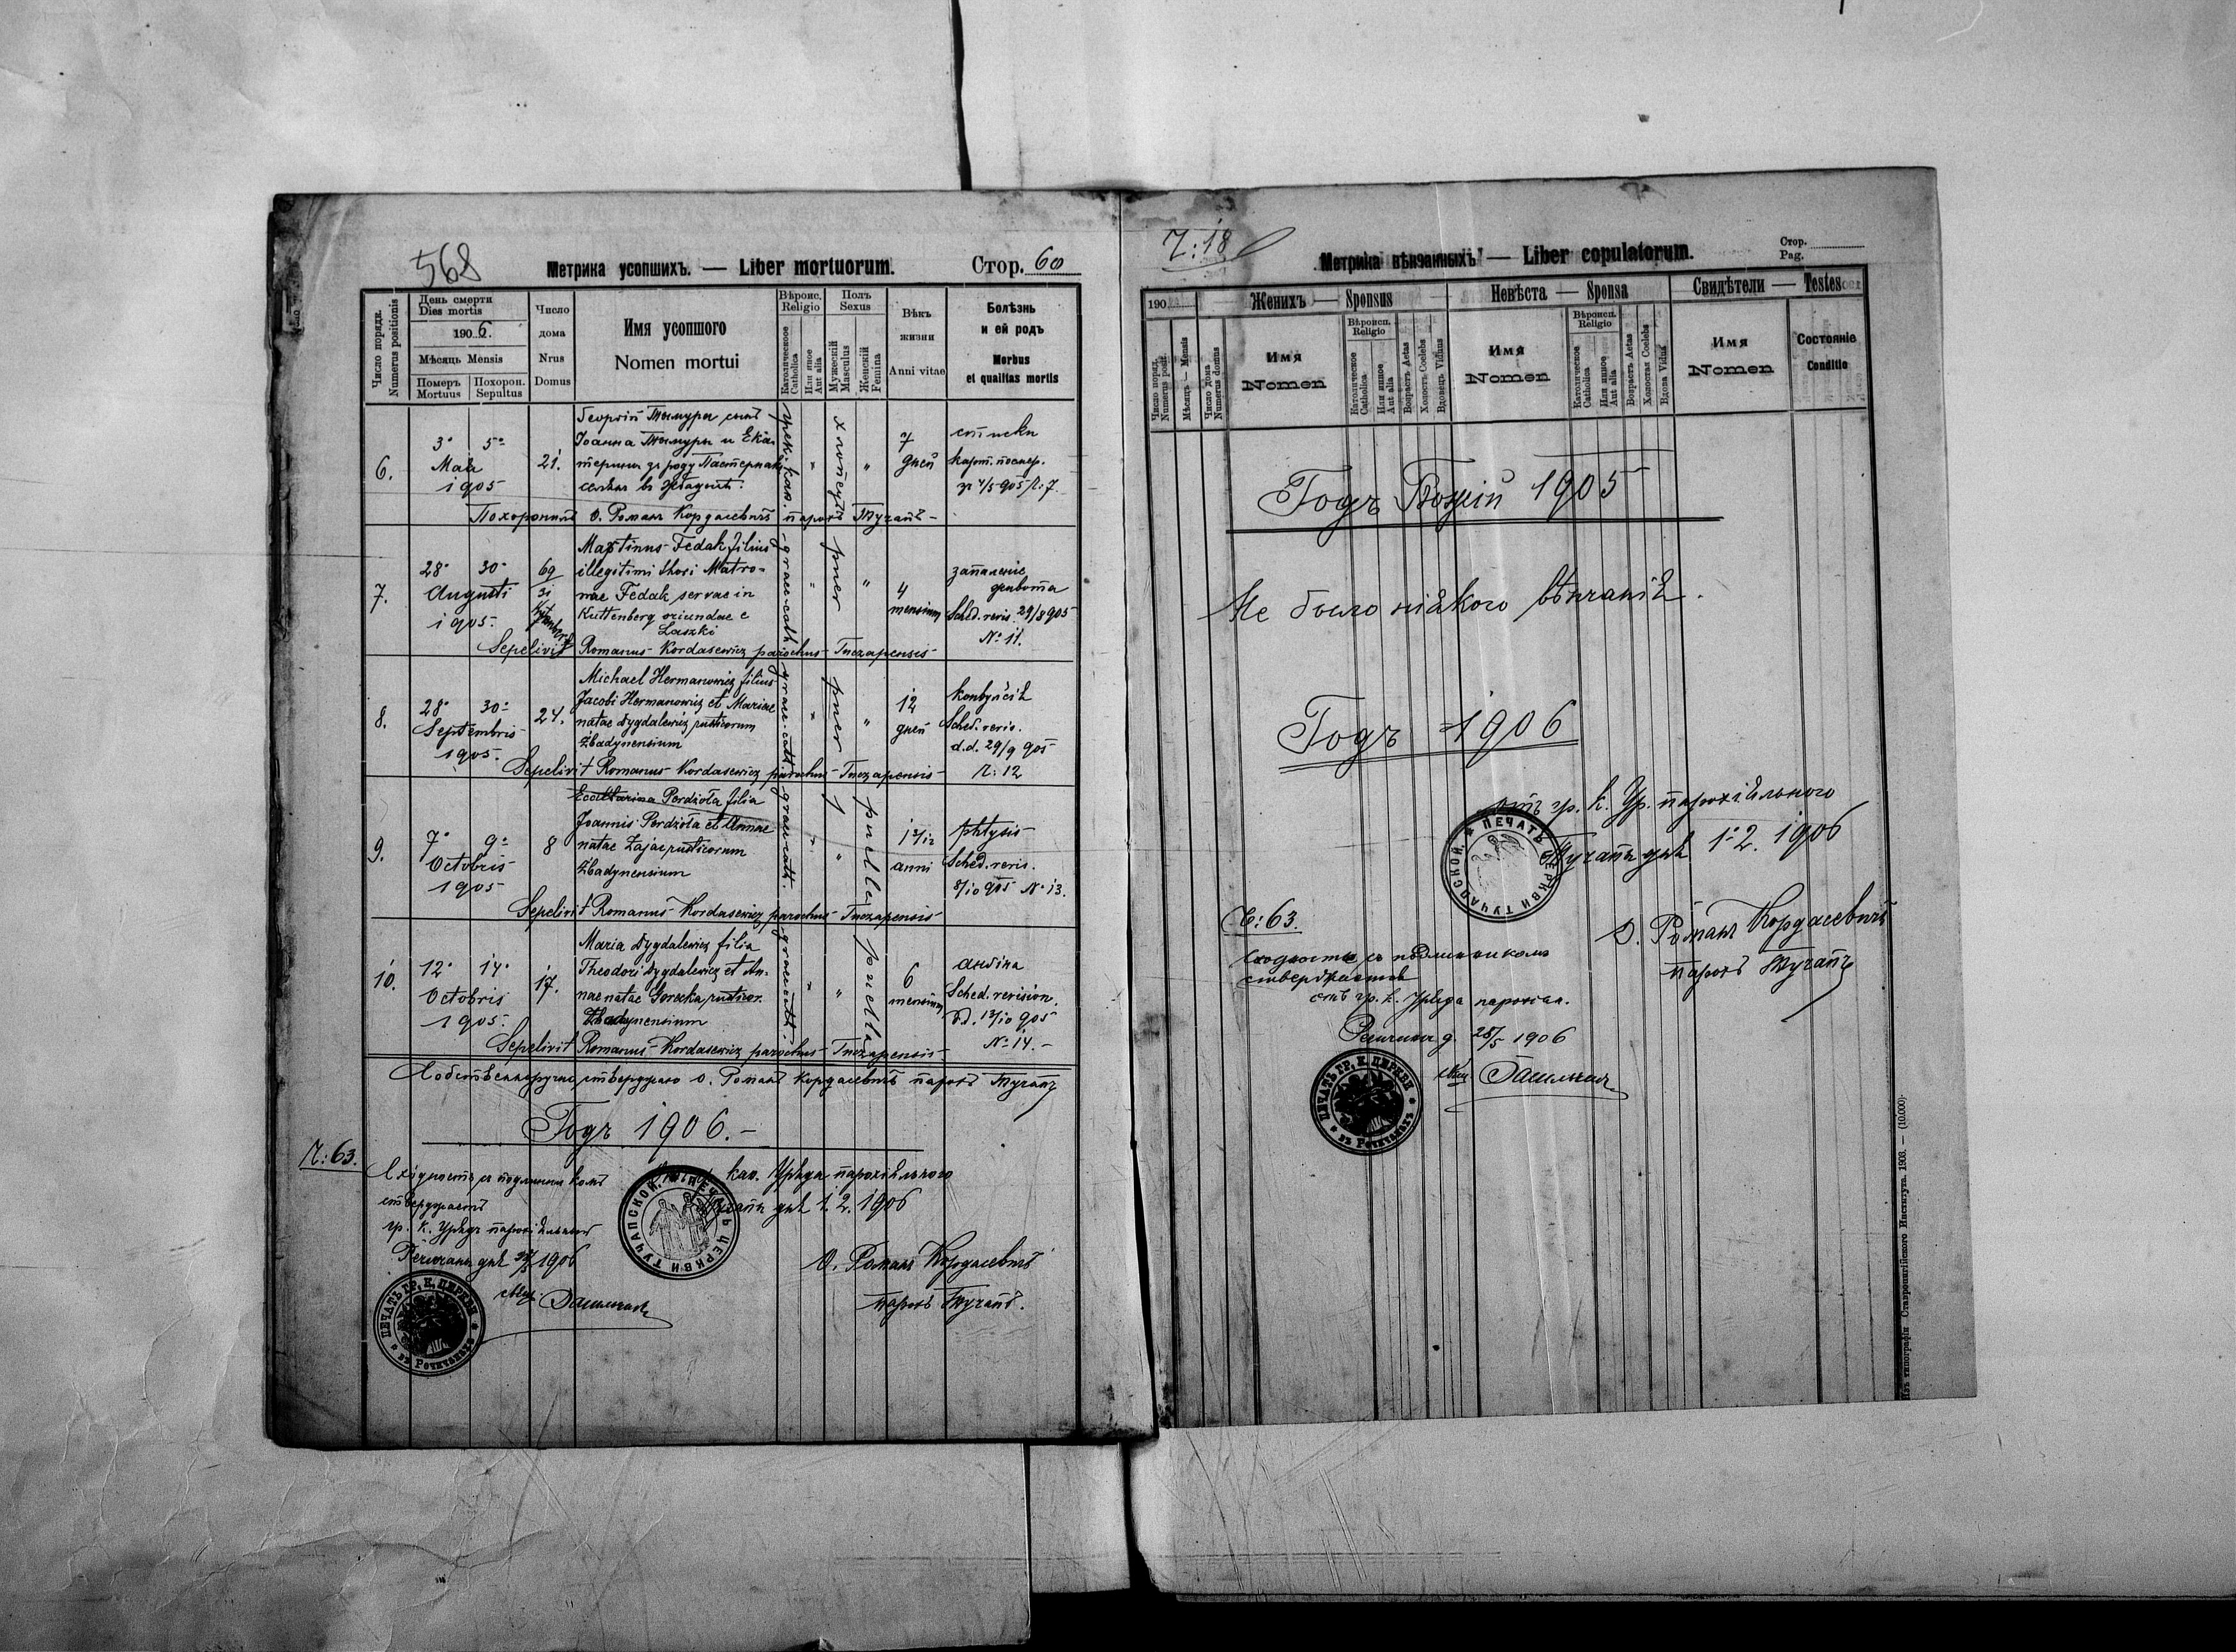 568
Метрика усопшихъ. — Liber mortuorum.
Стор. 60
Число порядк.
Numerus positionis
День смерти
Dies mortis
1906.
Мѣсяць Mensis
Померъ
Mortuus
Похорон.
Sepultus
Число
дома
Nrus
Domus
Имя усопшого
Nomen mortui
Вѣроис.
Religio
Католическое
Catholica
Или иное
Aut alia
Полъ
Sexus
Мужескій
Masculus
Женскій
Femina
Вѣкъ
жизни
Anni vitae
Болѣзнь
и ей родъ
Morbus
et qualitas mortis
6.
3· 5·
Мая
1905
21.
Георгій Тымуры сынъ
Іоанна Тымуры и Ека-
терины зъ роду Пастернакъ
хлопецъ
"
"
7
дней
карт. посмер.
зр 4/5 905 Ч: 7.
Похоронилъ о. Романъ Кордасевичъ парохъ Тучапъ -
7.
28· 30·
Augusti
1905.
69
31
Martinus Fedak filius
illegitimi thori Matro-
nae Fedak servae in
Kuttenberg oriundae e
Laszki
graec-cath.
"
puer
"
4
mensium
запаленіе
живота
Sched. revis. 29/8 905
No 11.
Sepelivit Romanus Kordasewicz parochus Tuczapensis
8.
28· 30·
Septembris
1905.
24.
Michael Hermanowicz filius
Jacobi Hermanowicz et Mariae
natae Dygdalewicz rusticorum
Zbadynensium
graec-cath.
"
puer
"
12
дней
Sched. revis.
d.d. 29/9 905
Ч: 12
Sepelivit Romanus Kordasewicz parochus Tuczapensis
9.
7· 9·
Octobris
1905
8
Ecatharina Perdżota filia
Joannis Perdżota et Annae
natae Zając rusticorum
Zbadynensium
graec-cath.
"
"
puella
1 3/12
anni
phtysis
Sched. revis.
8/10 905 No 13.
Sepelivit Romanus Kordasewicz parochus Tuczapensis
10.
12· 14·
Octobris
1905.
17.
Maria Dygdalewicz filia
Theodori Dygdalewicz et An-
nae natae Gorecka rusticor.
Zbadynensium
graec-cath.
"
"
puella
6
mensium
Sched. revision.
d.d. 13/10 905
No 14. -
Sepelivit Romanus Kordasewicz parochus Tuczapensis
Собственноручно стверджаю о. Романъ Кордасевичъ парохъ Тучапъ
Годъ 1906. -
Ч: 63.
Сходность съ подлинникомъ
стверджаетъ
гр. к. Урядъ парохіяльный
Речичаны дня 28/5 1906
кат. Уряда парохіяльного
Тучапы дня 1.2. 1906
ПЕЧАТЬ ЦЕРКВИ ТУЧАПСКОЙ
о. Романъ Кордасевичъ
парохъ Тучапъ.
ПЕЧАТЬ ГР. К. ЦЕРКВИ въ Речичанахъ
Ч: 18
Метрика вѣнчанныхъ — Liber copulatorum.
Стор.
Pag.
190
Число поряд.
Numerus posit.
Мѣсяць — Mensis
Число дома
Numerus domus
Женихъ — Sponsus
Имя
Nomen
Вѣроисп.
Religio
Католическое
Catholica
Или иное
Aut alia
Возрастъ Aetas
Холостъ Coelebs
Вдовецъ Viduus
Невѣста — Sponsa
Имя
Nomen
Вѣроисп.
Religio
Католическое
Catholica
Или иное
Aut alia
Возрастъ Aetas
Холостая Coelebs
Вдова Vidua
Свидѣтели — Testes
Имя
Nomen
Состояніе
Conditio
Годъ Божій 1905
Не было ніякого вѣнчанія.
Годъ 1906
отъ гр. к. Ур. парохіяльного
Тучапы дня 1.2. 1906
ПЕЧАТЬ ЦЕРКВИ ТУЧАПСКОЙ
о. Романъ Кордасевичъ
парохъ Тучапъ
Ч: 63.
Сходность съ подлинникомъ
стверджается
отъ гр. к. Уряда парохіял.
Речичаны д. 28/5 1906
ПЕЧАТЬ ГР. К. ЦЕРКВИ въ Речичанахъ
Изъ типографіи Ставропигійского Института. 1903. — (10.000)